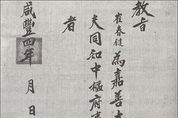 教旨
崔春健為嘉善大
夫同知中樞府事
者
咸豐四年 月 日